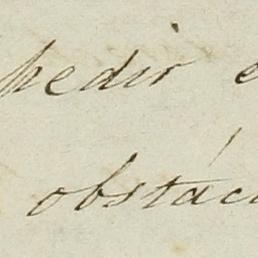 pedir e
obstác